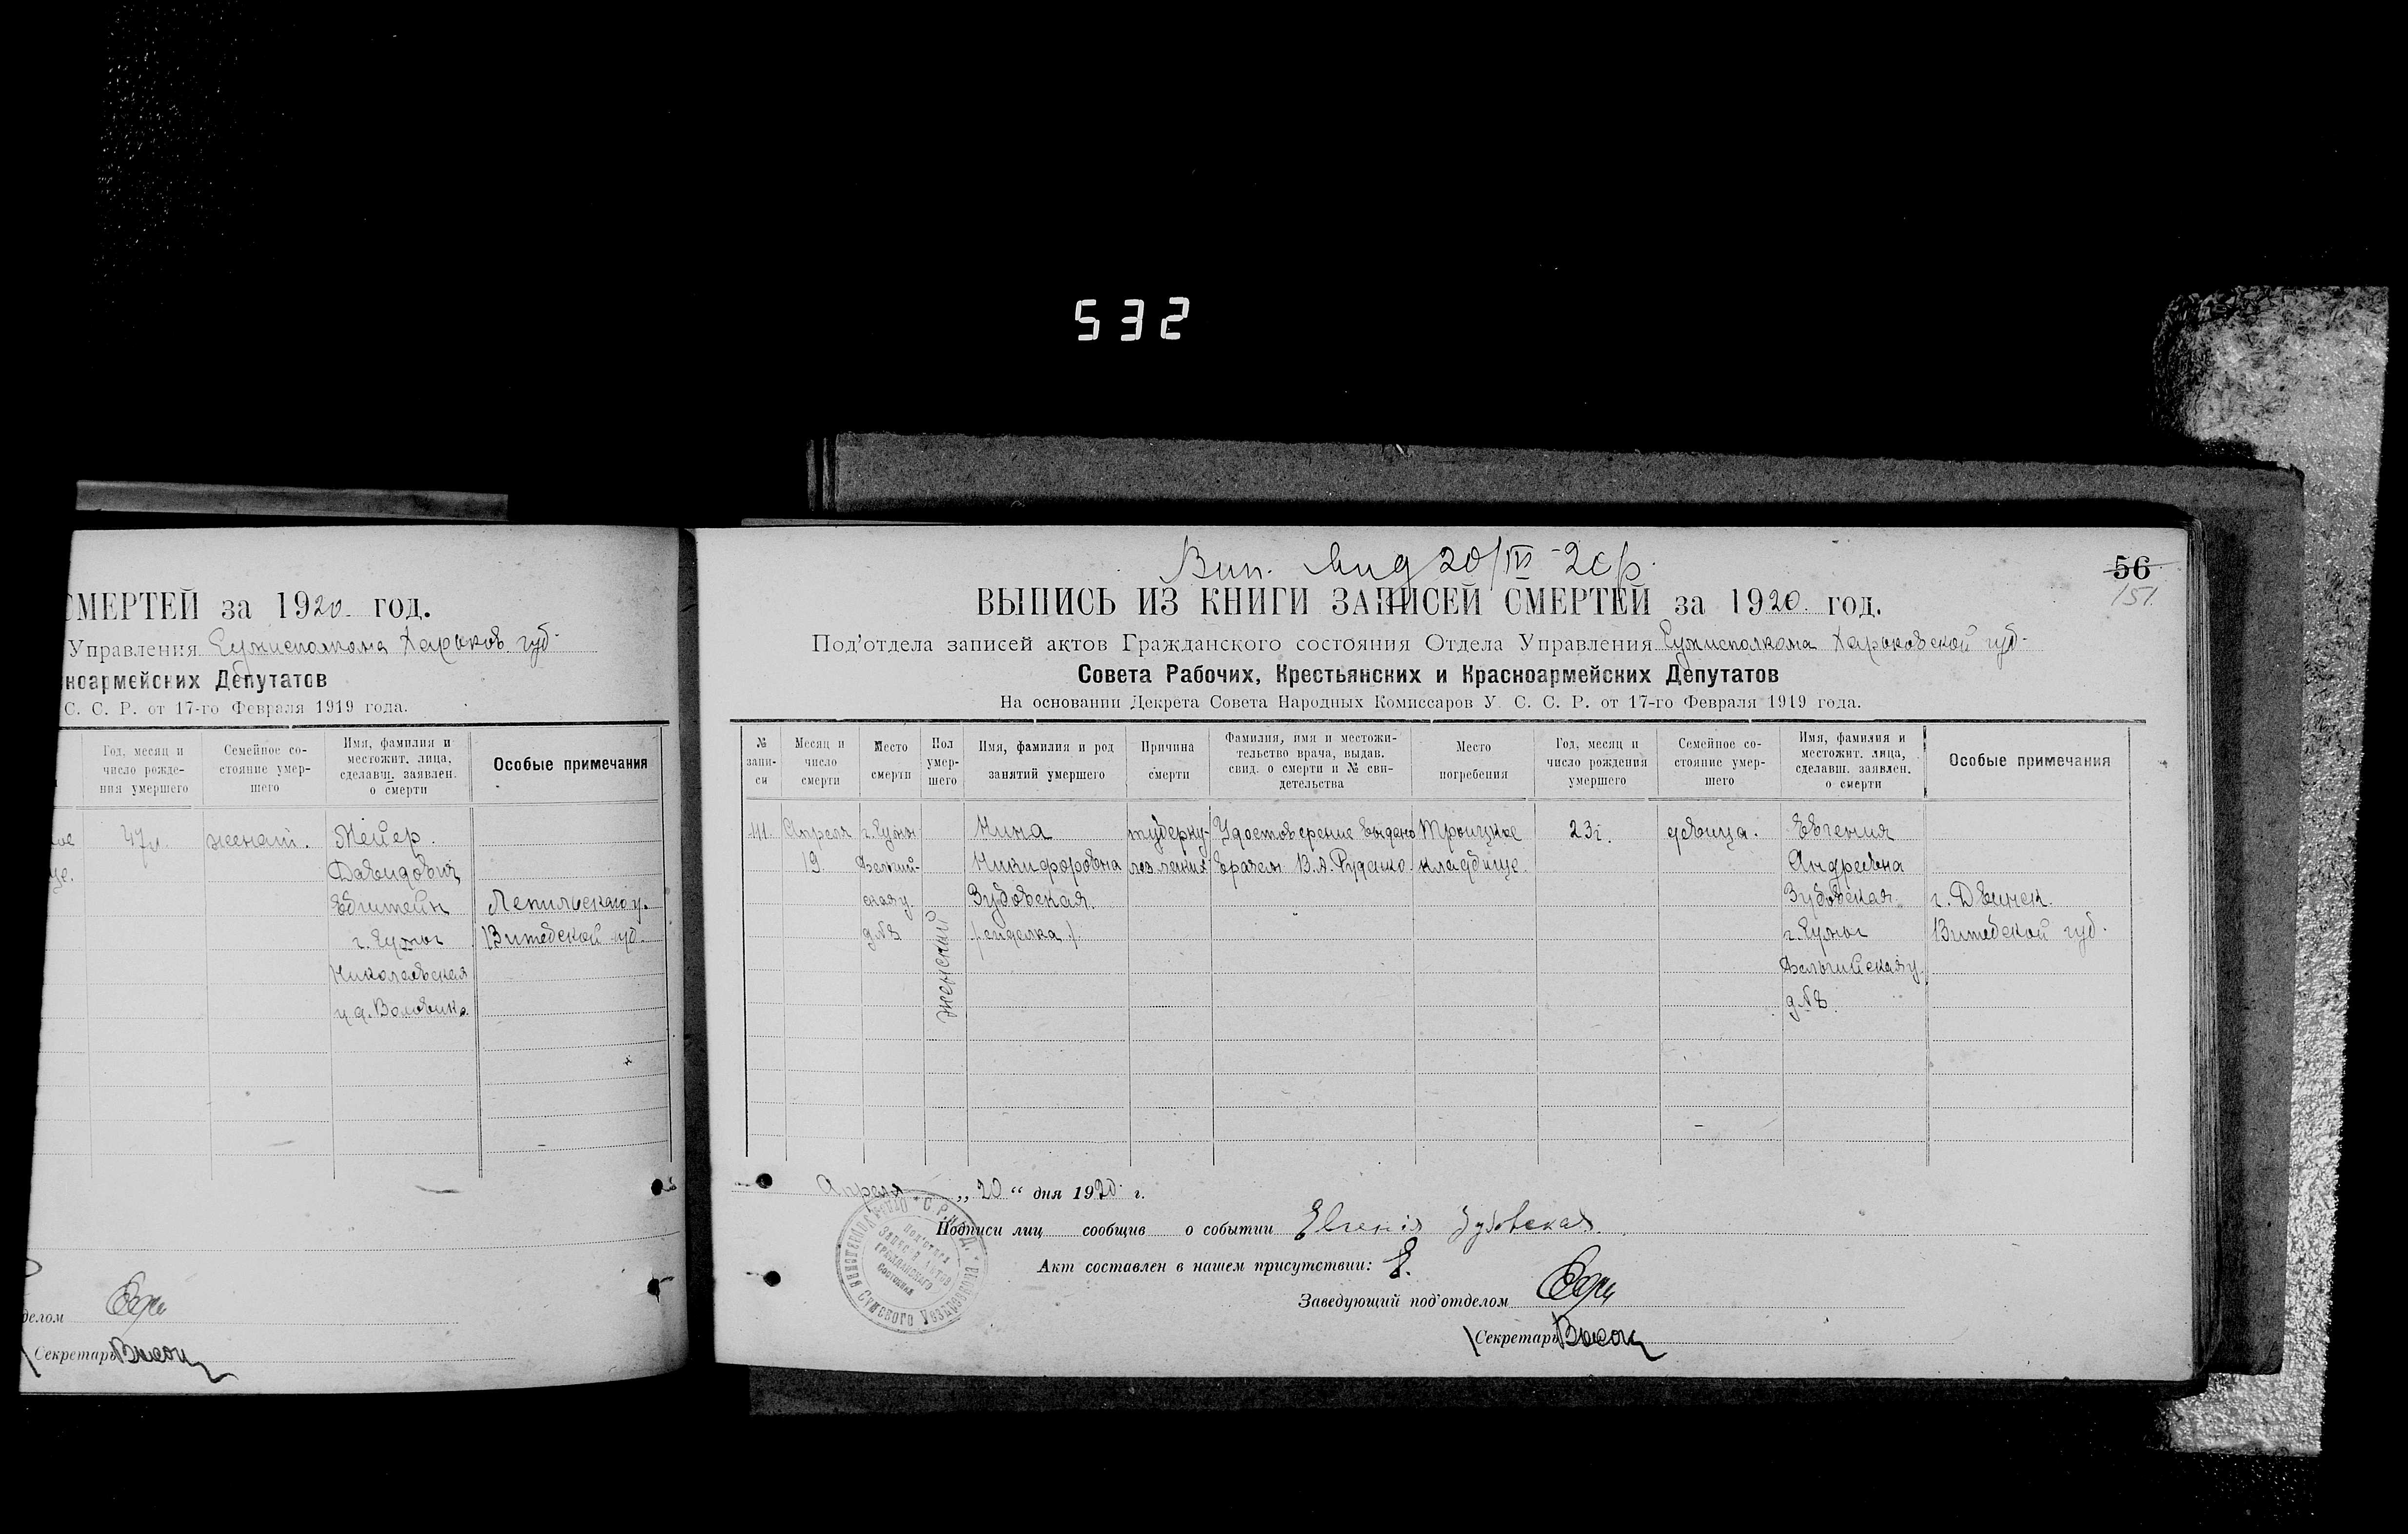 532
СМЕРТЕЙ за 1920 год.
Управления Сумисполкома Харьков. губ.
ноармейских Депутатов
С. С. Р. от 17-го Февраля 1919 года.
Год, месяц и число рожде- ния умершего
Семейное со- стояние умер- шего
Имя, фамилия и местожит. лица, сделавш. заявлен. о смерти
Особые примечания
47 л.
женат.
Мейер
Давидович
г. Сумы
Николаевская
Лепильскаго у.
Витебской губ.
делом
Секретарь
56
151
Вип. вид 20/IV - 20 р.
ВЫПИСЬ ИЗ КНИГИ ЗАПИСЕЙ СМЕРТЕЙ за 1920 год.
Под'отдела записей актов Гражданского состояния Отдела Управления Сумисполкома Харьковской губ.
Совета Рабочих, Крестьянских и Красноармейских Депутатов
На основании Декрета Совета Народных Комиссаров У. С. С. Р. от 17-го Февраля 1919 года.
№ запи- си
Месяц и число смерти
Место смерти
Пол умер- шего
Имя, фамилия и род занятий умершего
Причина смерти
Фамилия, имя и местожи- тельство врача, выдав. свид. о смерти и № сви- детельства
Место погребения
Год, месяц и число рождения умершего
Семейное со- стояние умер- шего
Имя, фамилия и местожит. лица, сделавш. заявлен. о смерти
Особые примечания
Апреля
19
г. Сумы
Бельгий-
ская у.
д № 8
женский
Нина
Никифоровна
Зубовская
/ сиделка /
туберку-
лоз легких
Удостоверение выдано
врачем В. А. Руденко
Троицкое
кладбище.
23 г.
девица.
Евгения
Андреевна
Зубовская
г. Сумы
Бельгийская у.
д № 8
г. Двинск.
Витебской губ.
Апреля „ 20 “ дня 1920 г.
Подписи лиц сообщив о событии Евгенія Зубовская
Акт составлен в нашем присутствии:
Заведующий под'отделом
Секретарь
Под'отдела
Записей Актов
Гражданского
Состояния